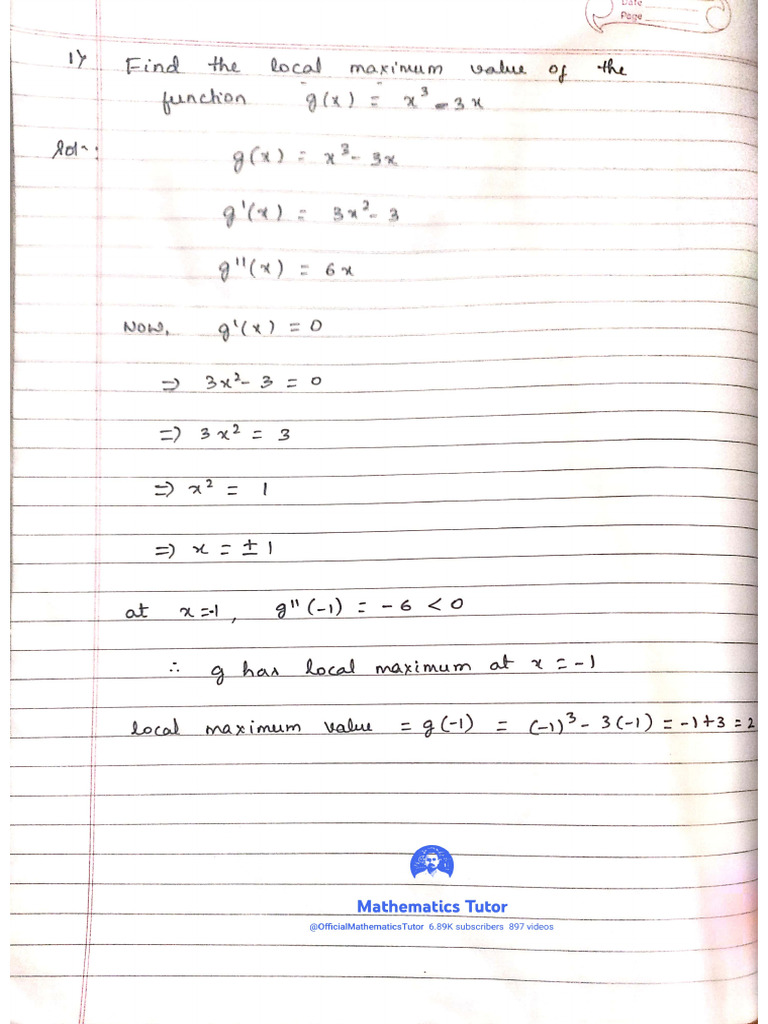 Date
Page
1) Find the local maximum value of the
function g(x) = x³ - 3x
Solⁿ: g(x) = x³ - 3x
g'(x) = 3x² - 3
g''(x) = 6x
Now, g'(x) = 0
⇒ 3x² - 3 = 0
⇒ 3x² = 3
⇒ x² = 1
⇒ x = ± 1
at x=-1, g''(-1) = - 6 < 0
∴ g has local maximum at x = -1
local maximum value = g(-1) = (-1)³ - 3(-1) = -1+3 = 2
Mathematics Tutor
@OfficialMathematicsTutor 6.89K subscribers 897 videos